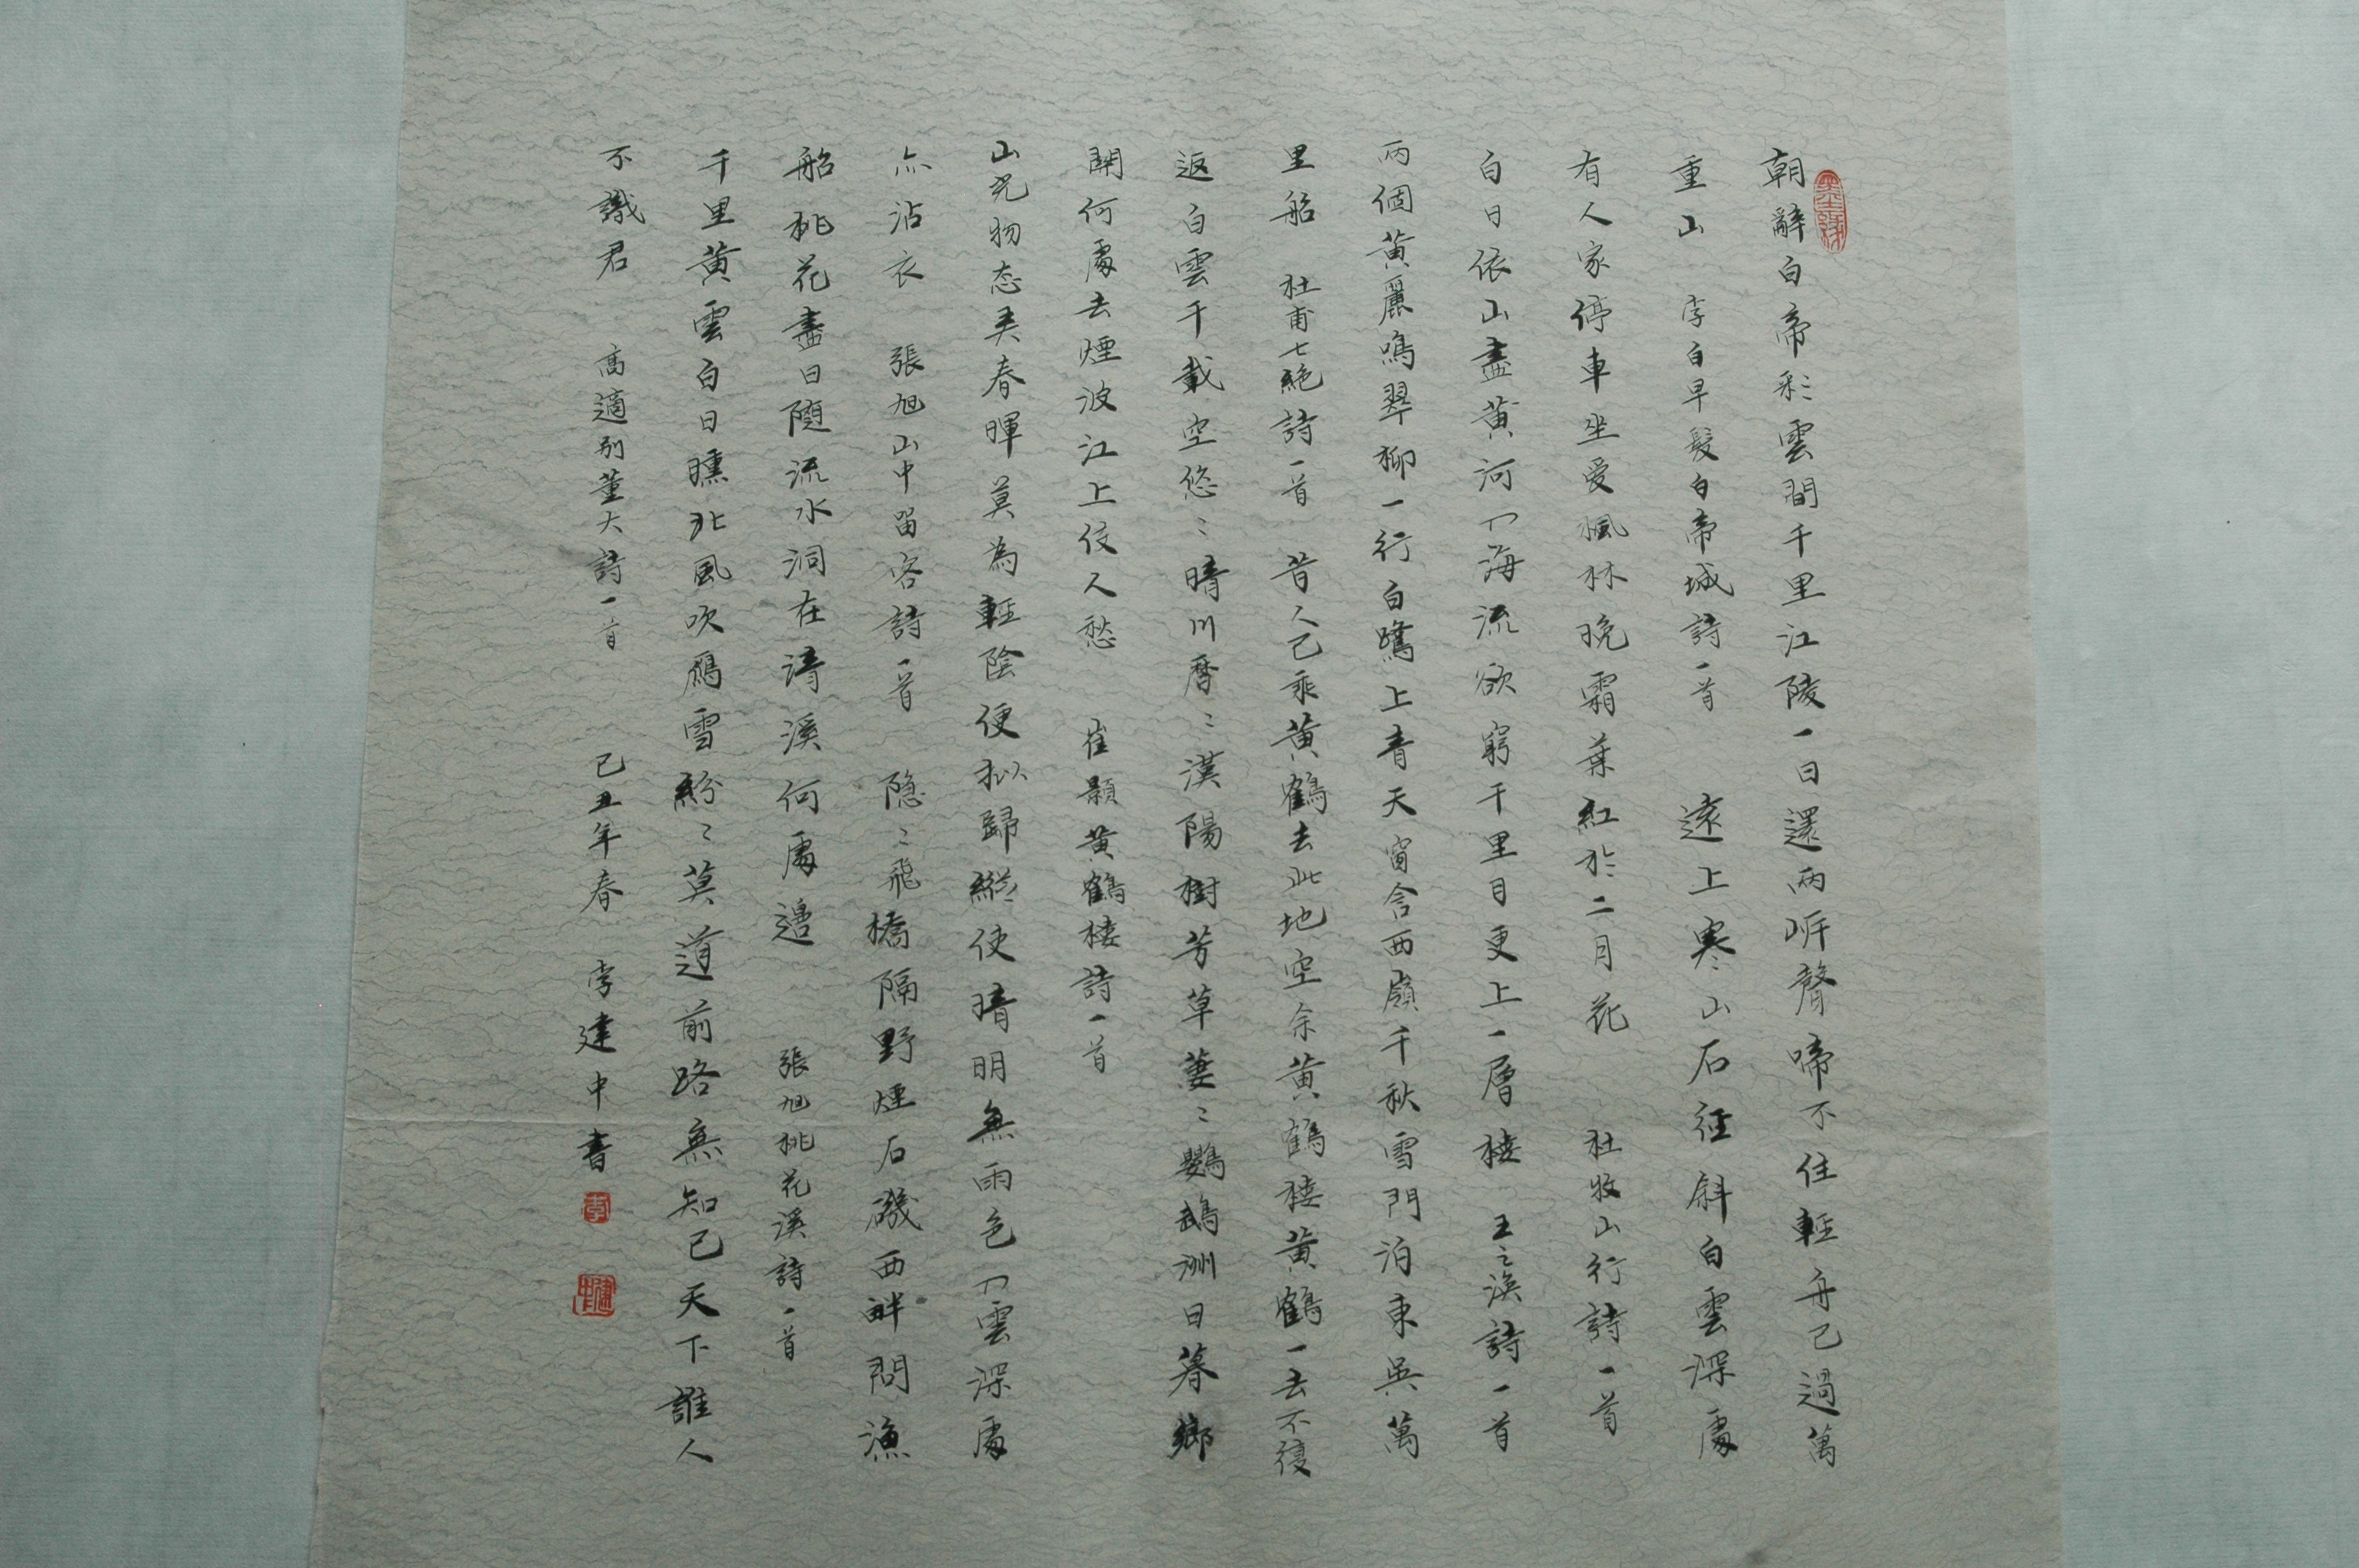 朝辭白帝彩雲間千里江陵一日還兩岍聲啼不住輕舟已過萬
重山 李白早髮白帝城詩一首 遠上寒山石徑斜白雲深處
有人家停車坐愛楓林晚霜葉紅於二月花 杜牧山行詩一首
白日依山盡黃河入海流欲窮千里目更上一層樓 王之渙詩一首
兩個黃麗鳴翠柳一行白鷺上青天窗含西嶺千秋雪門泊東吳萬
里船 杜甫七絕詩一首 昔人已乘黃鶴去此地空余黃鶴樓黃鶴一去不復
返白雲千載空悠〻晴川曆〻漢陽樹芳草萋〻鸚鵡洲日暮鄉
關何處去煙波江上使人愁 崔顥黃鶴樓詩一首
山光物态美春暉莫為輕陰便拟歸縱使晴明無雨色入雲深處
亦沾衣 張旭山中留客詩一首 隐〻飛橋隔野煙石磯西畔問漁
船桃花盡日隨流水洞在清溪何處邊 張旭桃花溪詩一首
千里黃雲白日曛北風吹雁雪紛〻莫道前路無知己天下誰人
不識君 高適別董大詩一首 己丑年春 李建中書
李